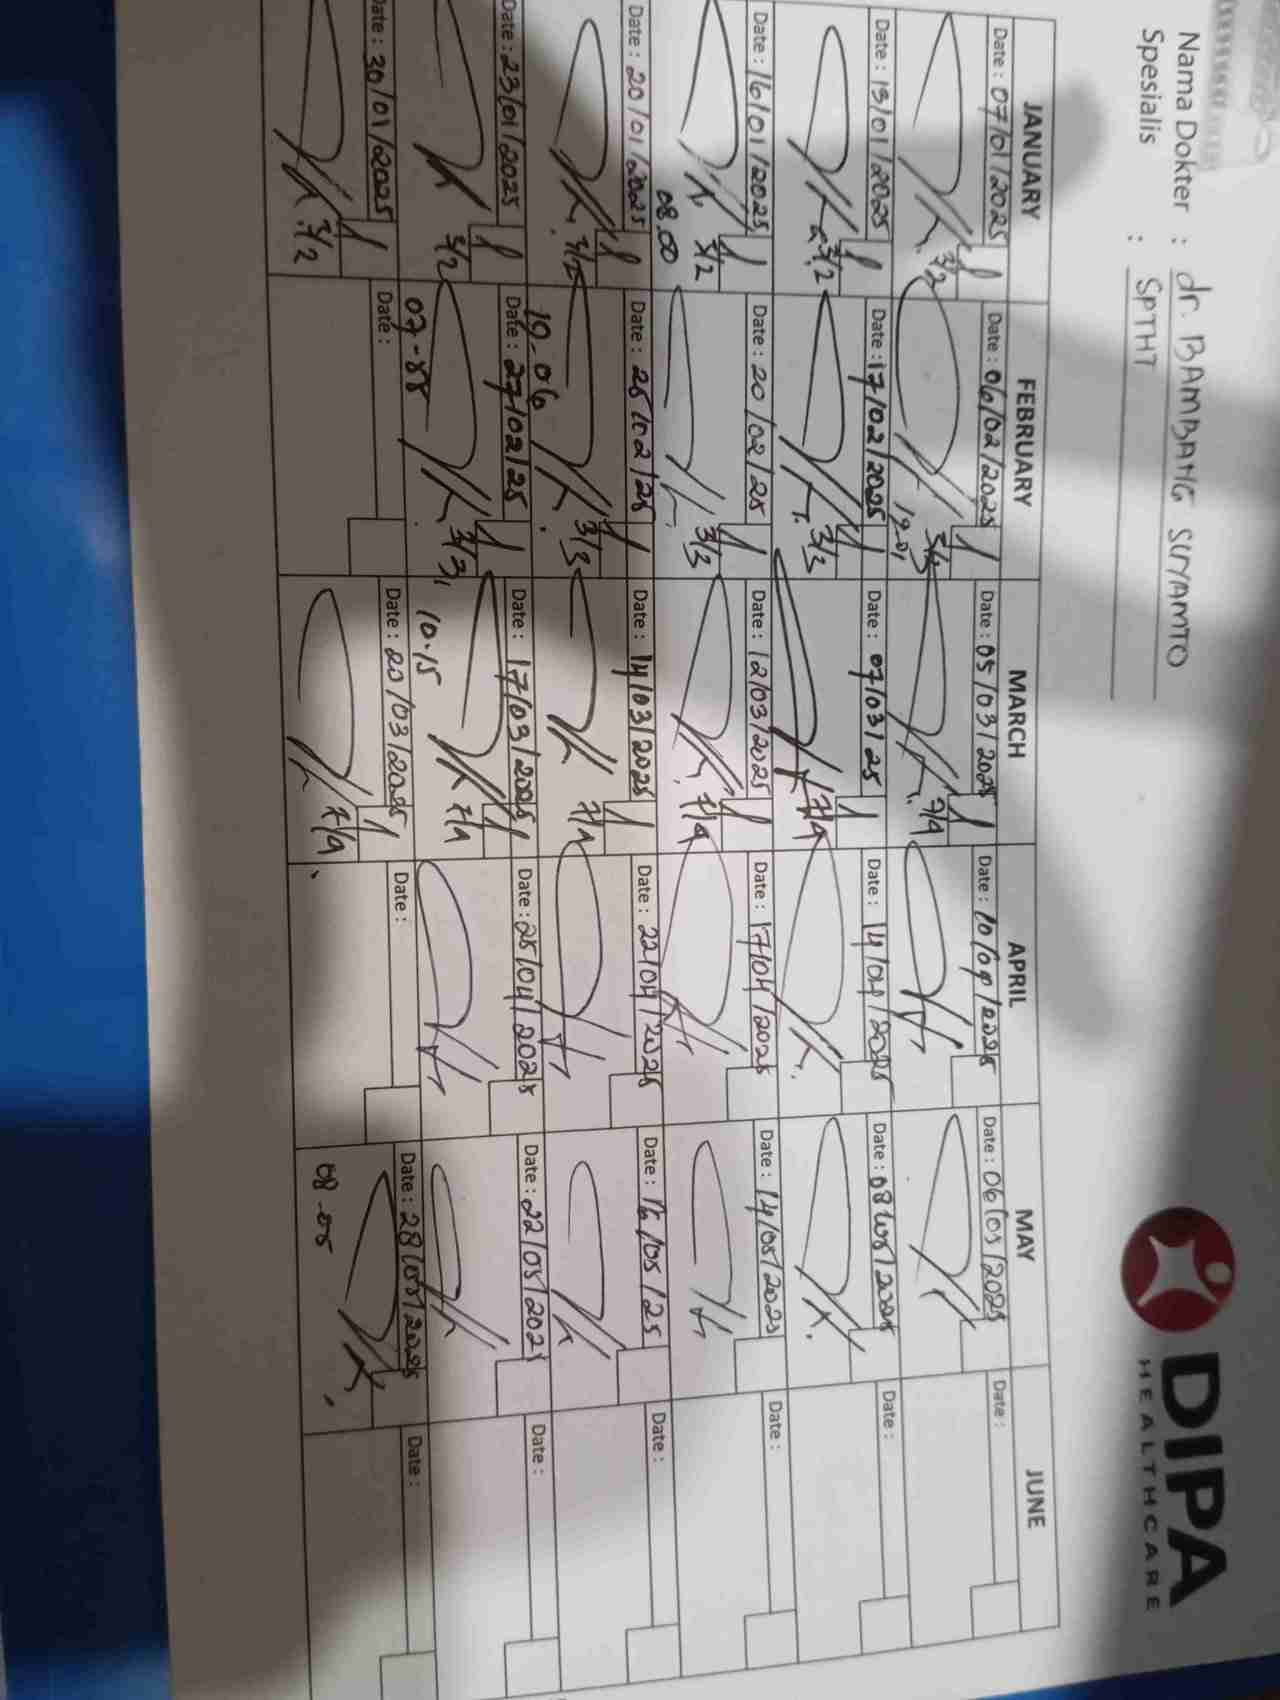 DIPA
HEALTHCARE
Nama Dokter : dr. BAMBANG SUYAMTO
Spesialis : SPTHT
JANUARY FEBRUARY MARCH APRIL MAY JUNE
Date : 07/01/2025 Date : 06/02/2025 Date : 05/03/2025 Date : 10/04/2025 Date : 06/05/2025 Date :
7/2 12.01 3/3 7/4
Date : 13/01/2025 Date : 17/02/2025 Date : 07/03/25 Date : 14/04/2025 Date : 08/05/2025 Date :
7/2 3/3 7/4
Date : 16/01/2025 Date : 20/02/25 Date : 12/03/2025 Date : 17/04/2025 Date : 14/05/2025 Date :
08.00 7/2 3/3 7/4
Date : 20/01/2025 Date : 25/02/25 Date : 14/03/2025 Date : 22/04/2025 Date : 16/05/25 Date :
7/2 19-06 3/3 7/4
Date : 23/01/2025 Date : 27/02/25 Date : 17/03/2025 Date : 25/04/2025 Date : 22/05/2025 Date :
7/2 07-55 3/3 10.15 7/4
Date : 30/01/2025 Date : Date : 20/03/2025 Date : Date : 28/05/2025 Date :
7/2 7/4 08-05